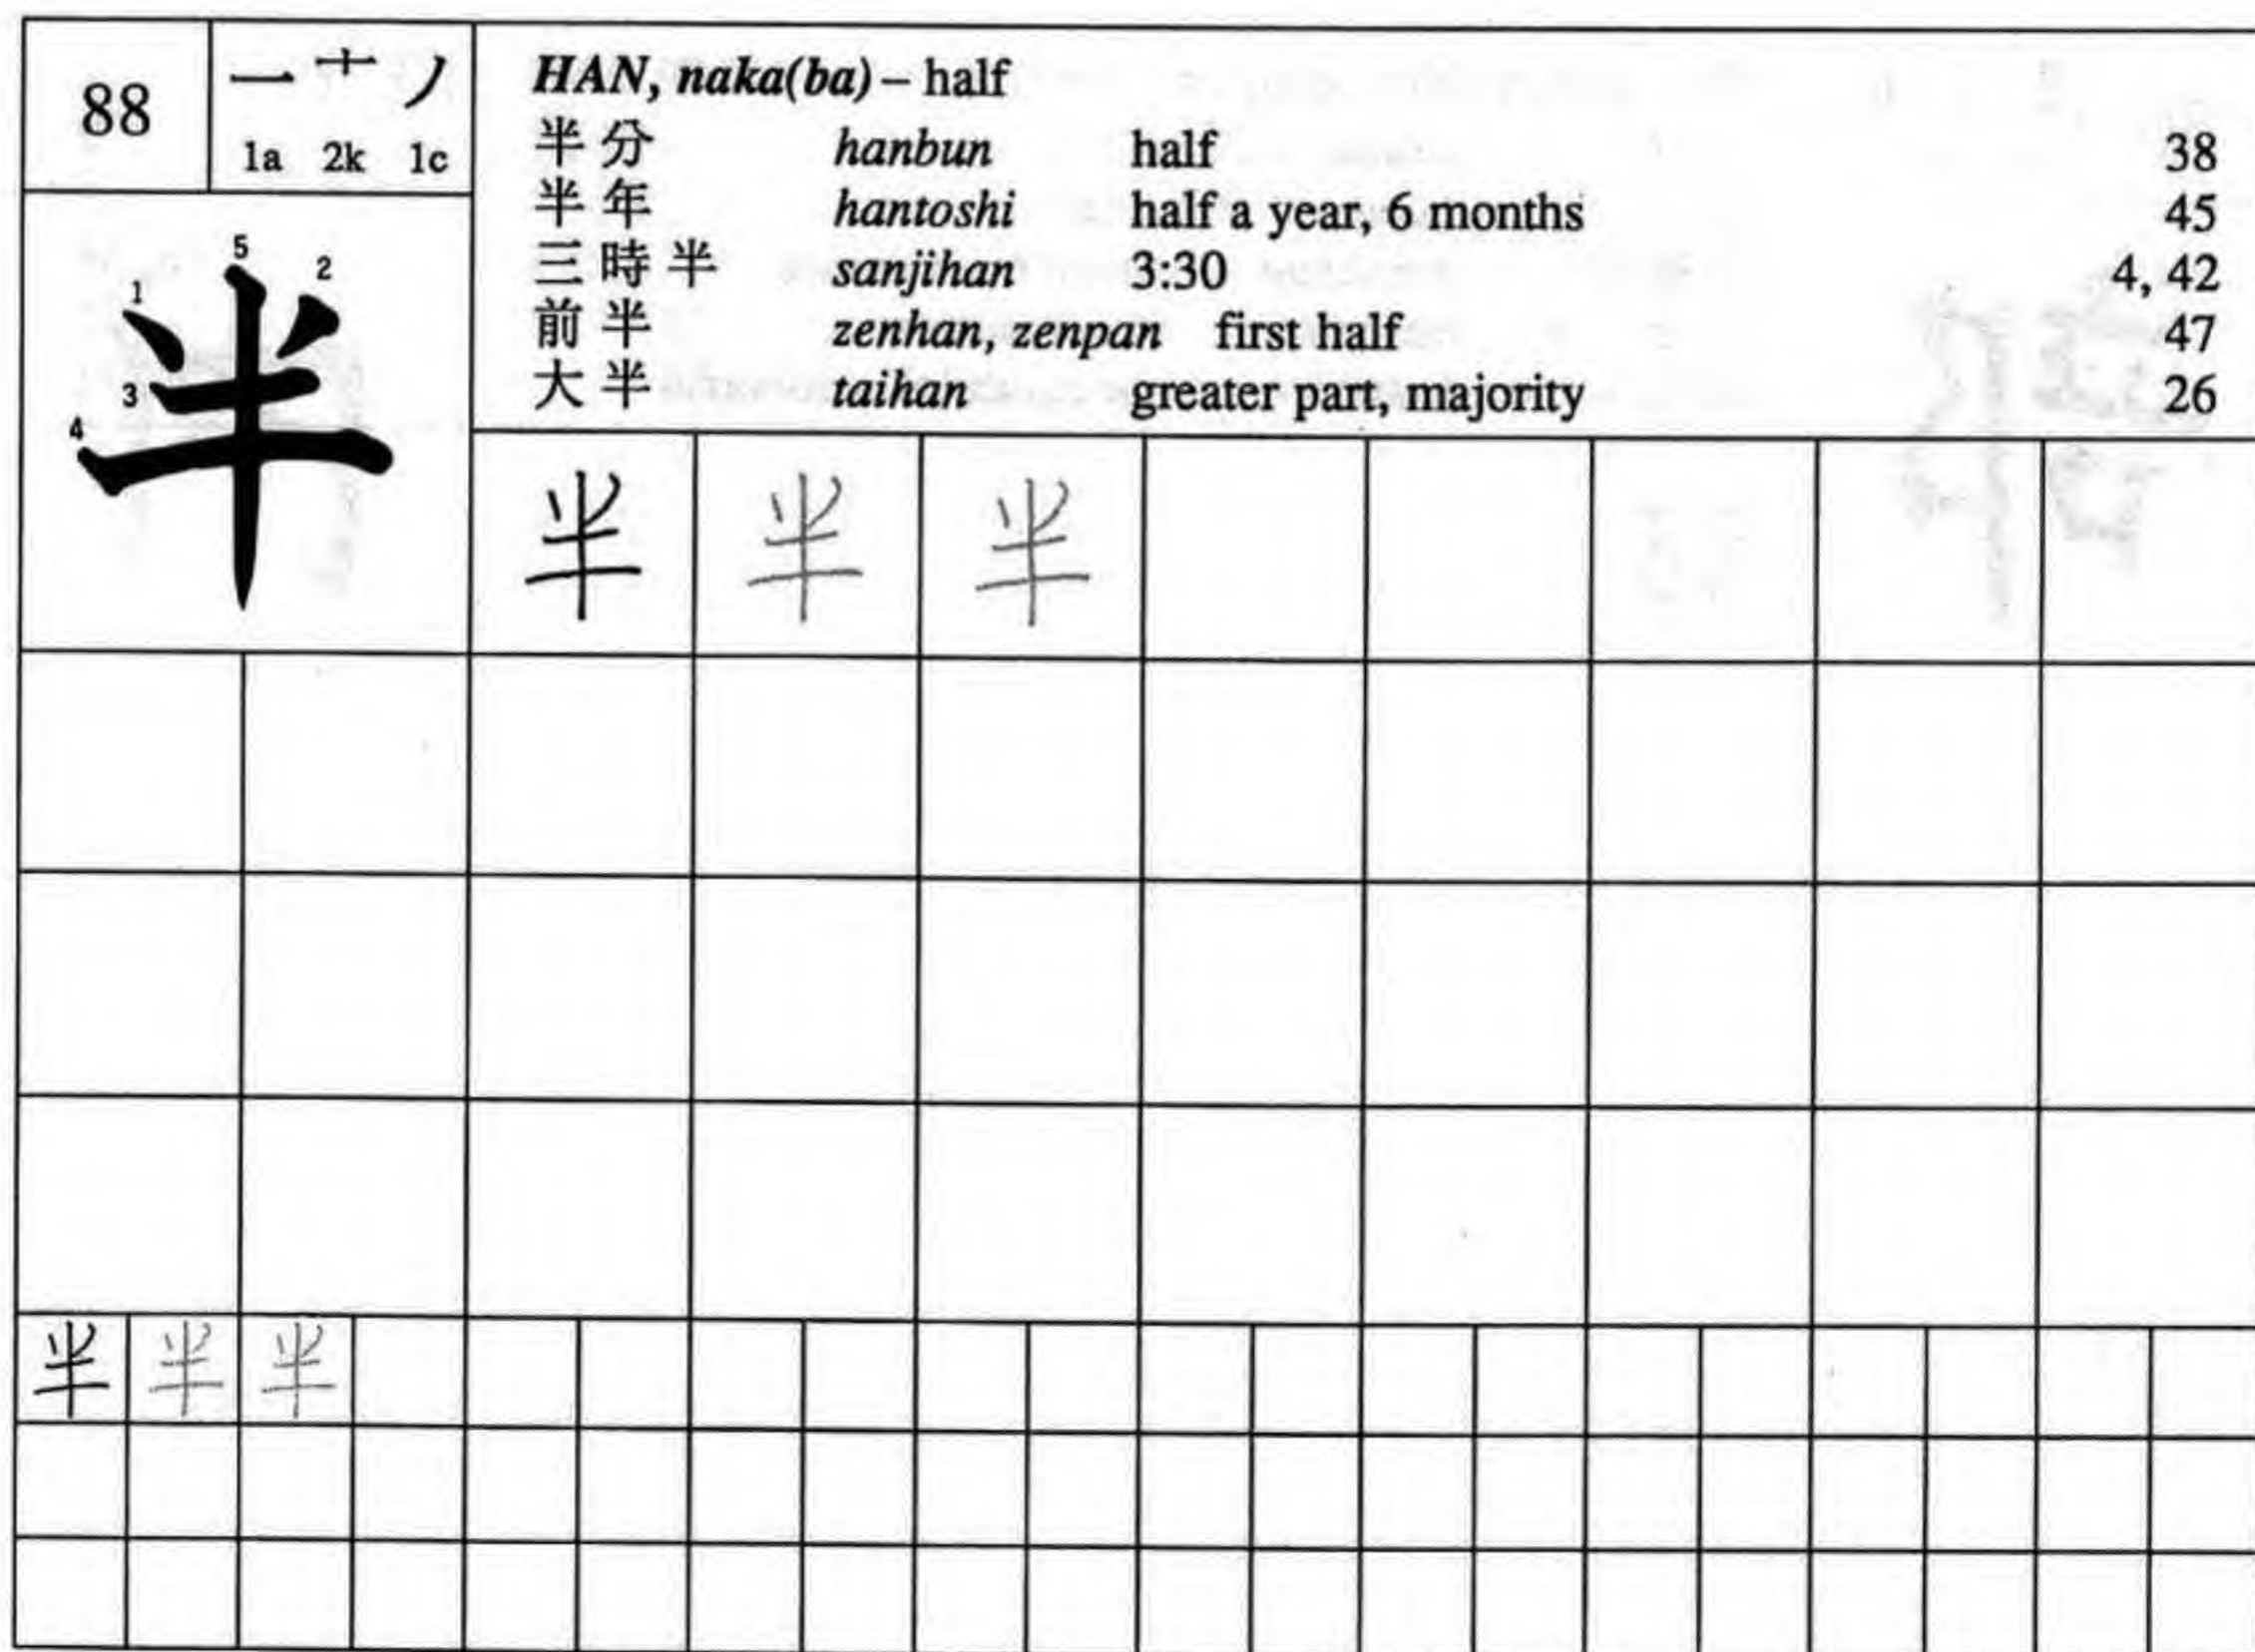 88
一 亠 ノ
1a 2k 1c
HAN, naka(ba) – half
半分 hanbun half 38
半年 hantoshi half a year, 6 months 45
三時半 sanjihan 3:30 4, 42
前半 zenhan, zenpan first half 47
大半 taihan greater part, majority 26
1 2 3 4 5
半
半 半 半
半 半 半